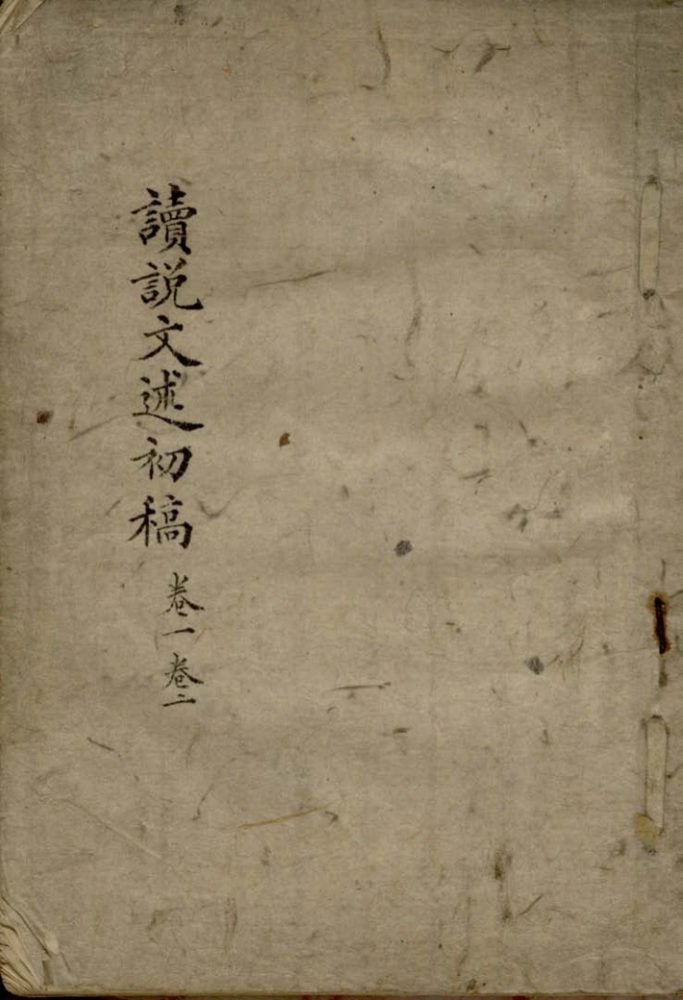 讀説文述初稿
卷一卷二